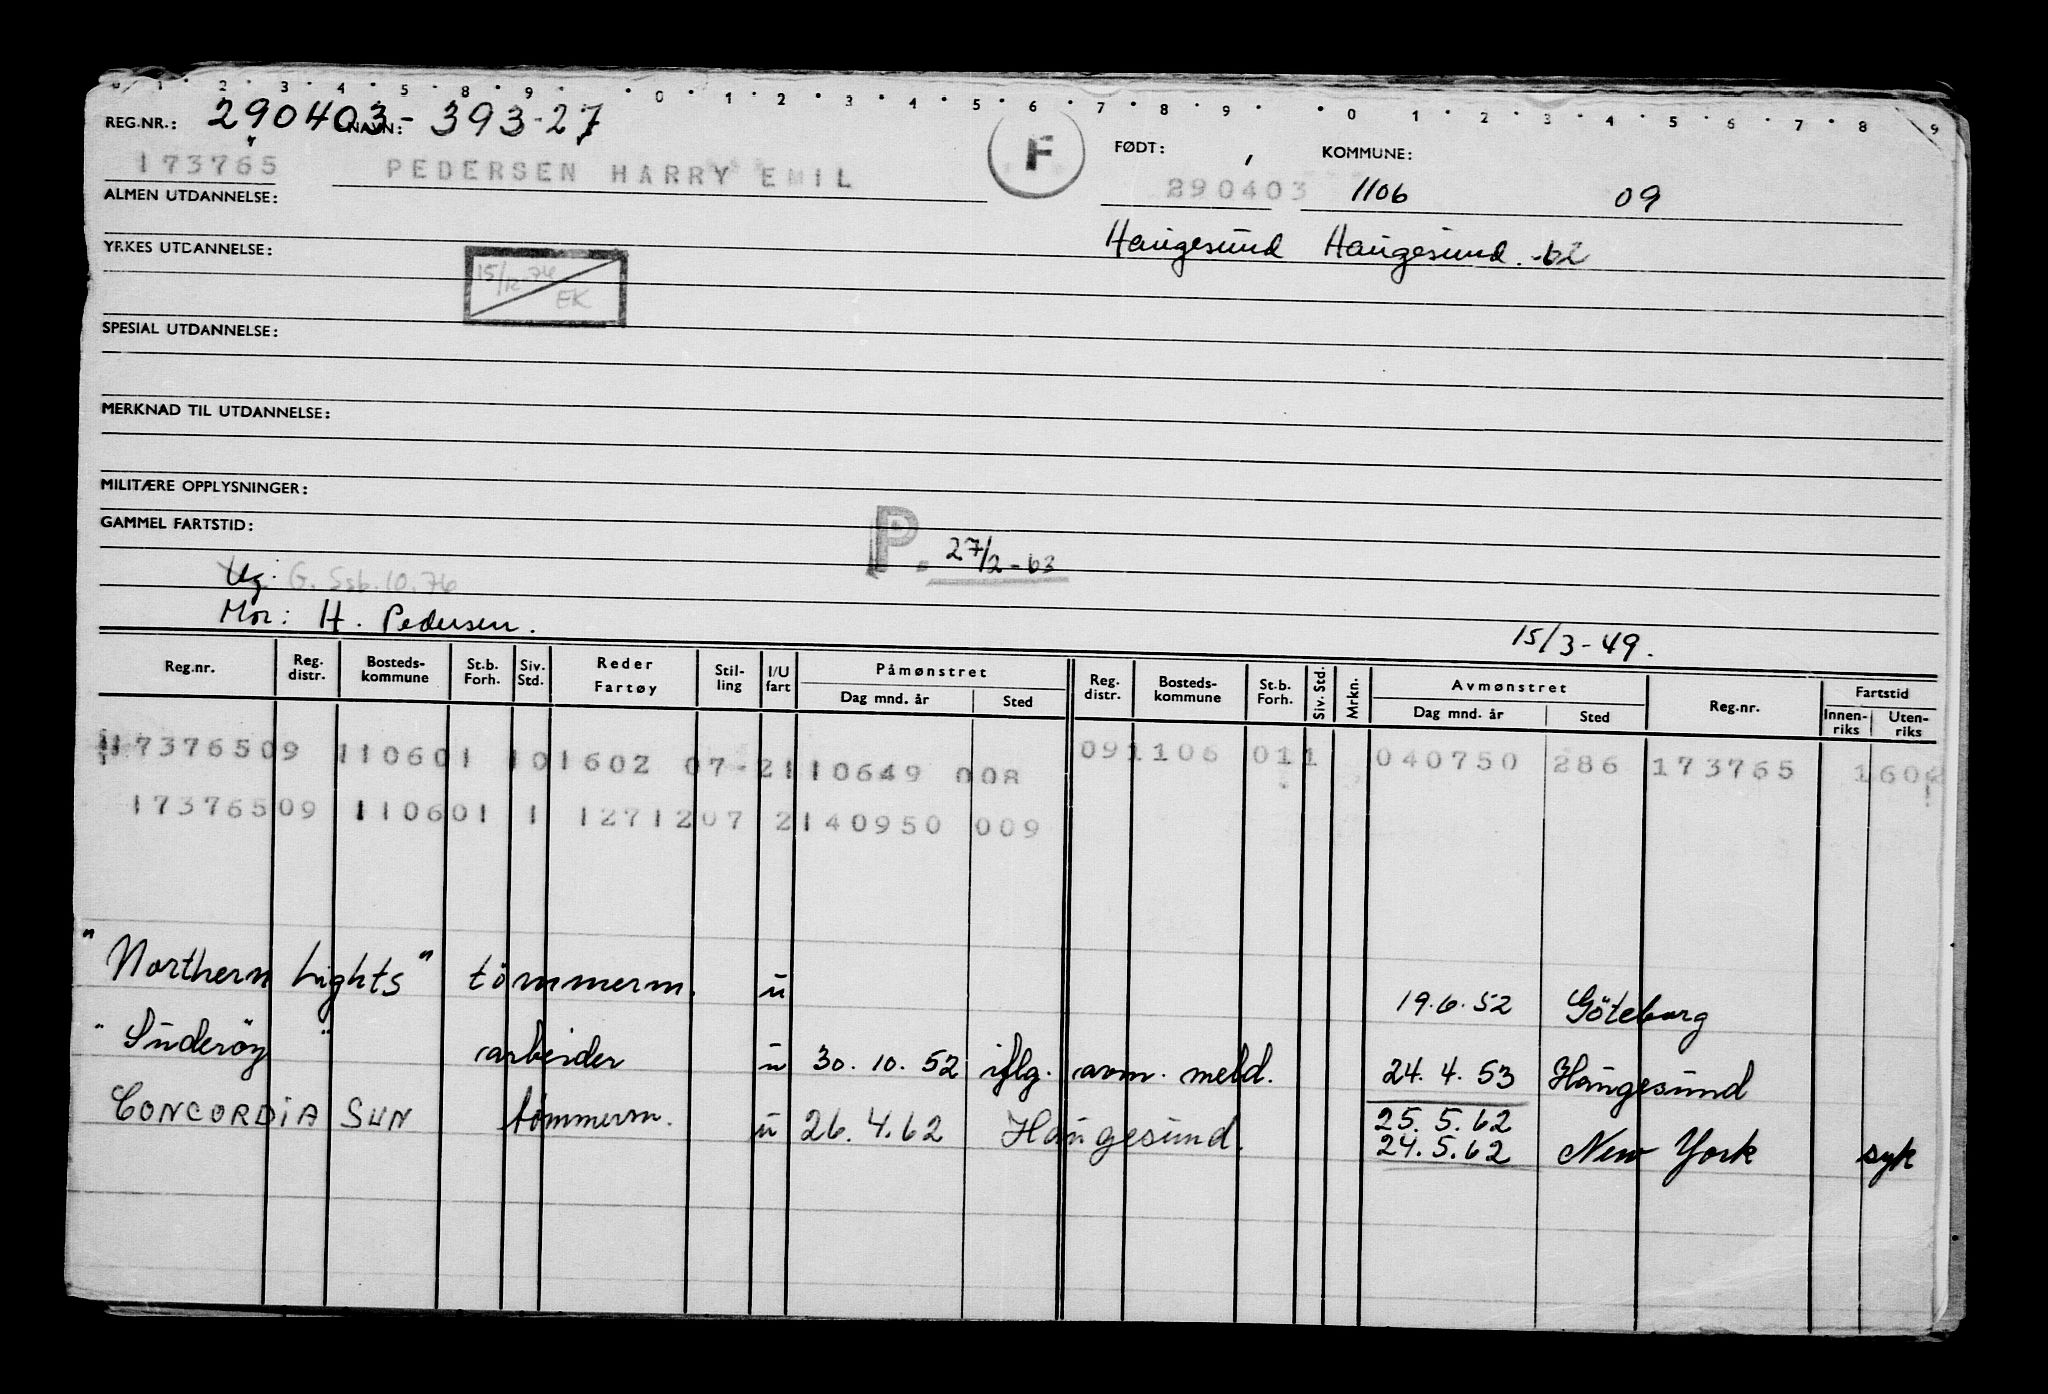 0 1 2 3 4 5 8 9 0 1 2 3 4 5 6 7 8 9 0 1 2 3 4 5 6 7 8 9
REG.NR.: 290403-393-27 NAVN: F FØDT: KOMMUNE:
173765 PEDERSEN HARRY EMIL 290403 1106 09
ALMEN UTDANNELSE:
Haugesund Haugesund. -62
YRKES UTDANNELSE:
15/12-76 EK
SPESIAL UTDANNELSE:
MERKNAD TIL UTDANNELSE:
MILITÆRE OPPLYSNINGER:
GAMMEL FARTSTID:
P. 27/2-63
Ug: G. Ssb. 10.76
Mor: H. Pedersen.
15/3-49.
Reg.nr. Reg. distr. Bosteds-kommune St.b. Forh. Siv. Std. Reder Fartøy Stil-ling I/U fart Påmønstret Dag mnd. år Sted Reg. distr. Bosteds-kommune St.b. Forh. Siv. Std. Mrkn. Avmønstret Dag mnd. år Sted Reg.nr. Fartstid Innen-riks Uten-riks
17376509 110601 101602 07-2110649 008 091106 011 040750 286 173765
17376509 110601 1 1271207 2140950 009
"Northern Lights" tömmerm. u 19.6.52 Göteborg
"Suderöy" arbeider u 30.10.52 iflg. avm. meld. 24.4.53 Haugesund
CONCORDIA SUN tömmerm. u 26.4.62 Haugesund. 25.5.62
24.5.62 New York syk